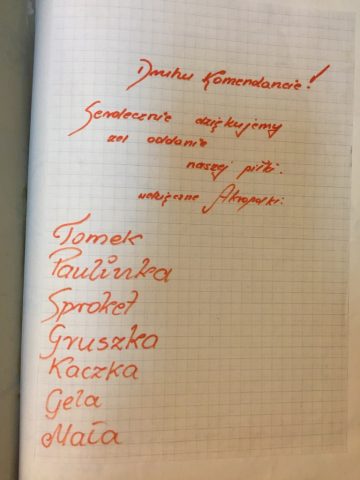 Druhu Komendancie!
Serdecznie dziękujemy
za oddanie
naszej piłki.
wdzięczne Akropolki.
Tomek
Paulinka
Sproket
Gruszka
Kaczka
Gela
Mała